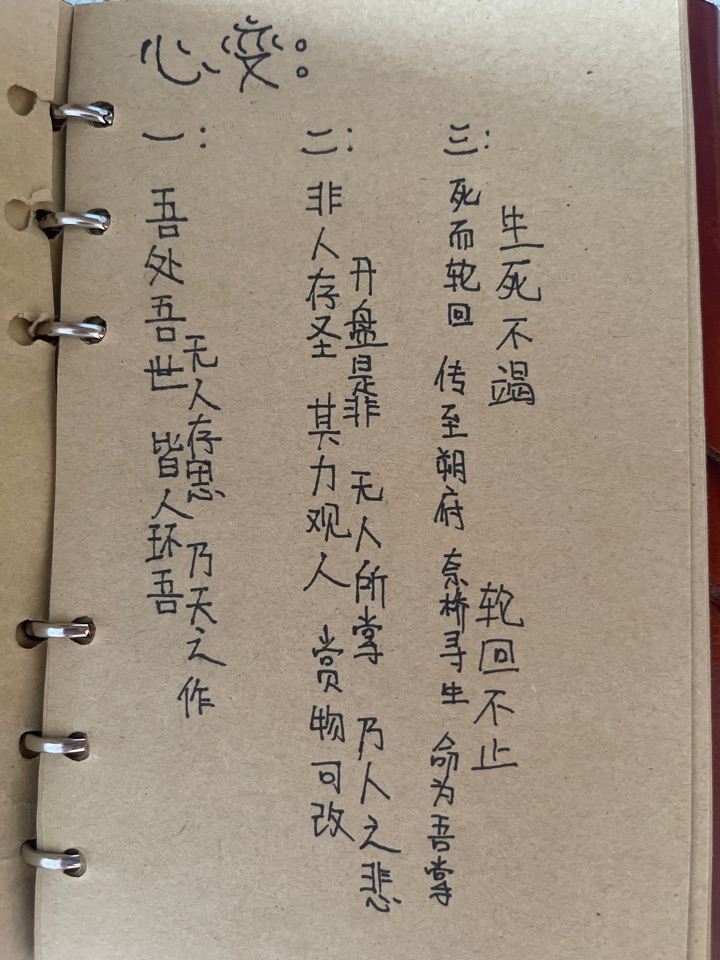 心变：
一：
吾处吾世 皆人环吾
无人存思 乃天之作
二：
非人存圣 其力观人 赏物可改
开盘是非 无人所掌 乃人之悲
三：
死而轮回 传至朔府 奈桥寻生 命为吾掌
生死不竭 轮回不止